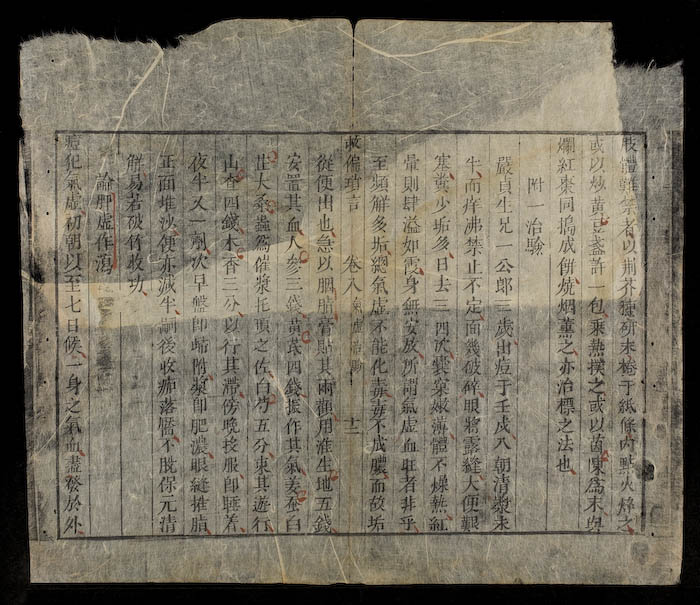 肢體難禁者以荆芥穗研末捲于紙條內點火焠之
或以炒黃豆盞許一包乘熱撲之或以茵陳為末與
爛紅棗同搗成餅燒烟薰之亦治標之法也
附一治驗
嚴貞生兄一公郎三歲出痘于壬戌八朝清漿未
牛而痒沸禁止不定面幾破碎眼將露縫大便艱
塞糞少垢多日去三四次囊窠嫩薄體不燥熱紅
暈則肆溢如霞身無安放所謂氣虛血旺者非乎
至頻解多垢總氣虛不能化毒毒不成膿而故垢
救偏瑣言 卷八 氣虛治驗 十三
從便出也急以胭脂膏貼其兩顴用淮生地五錢
安置其血人參三錢黃芪四錢振作其氣羌蚕白
芷大桑蟲為催漿托頭之佐白芍五分束其遊行
山查四錢木香三分以行其滯傍晚投服即睡着
夜半又一劑次早盤即歸附漿即肥濃眼縫推脂
正面堆沙便亦減半嗣後收痂落靨不脫保元清
解易若破竹收功
論脾虛作瀉
痘犯氣虛初朝以至七日候一身之氣血盡發於外